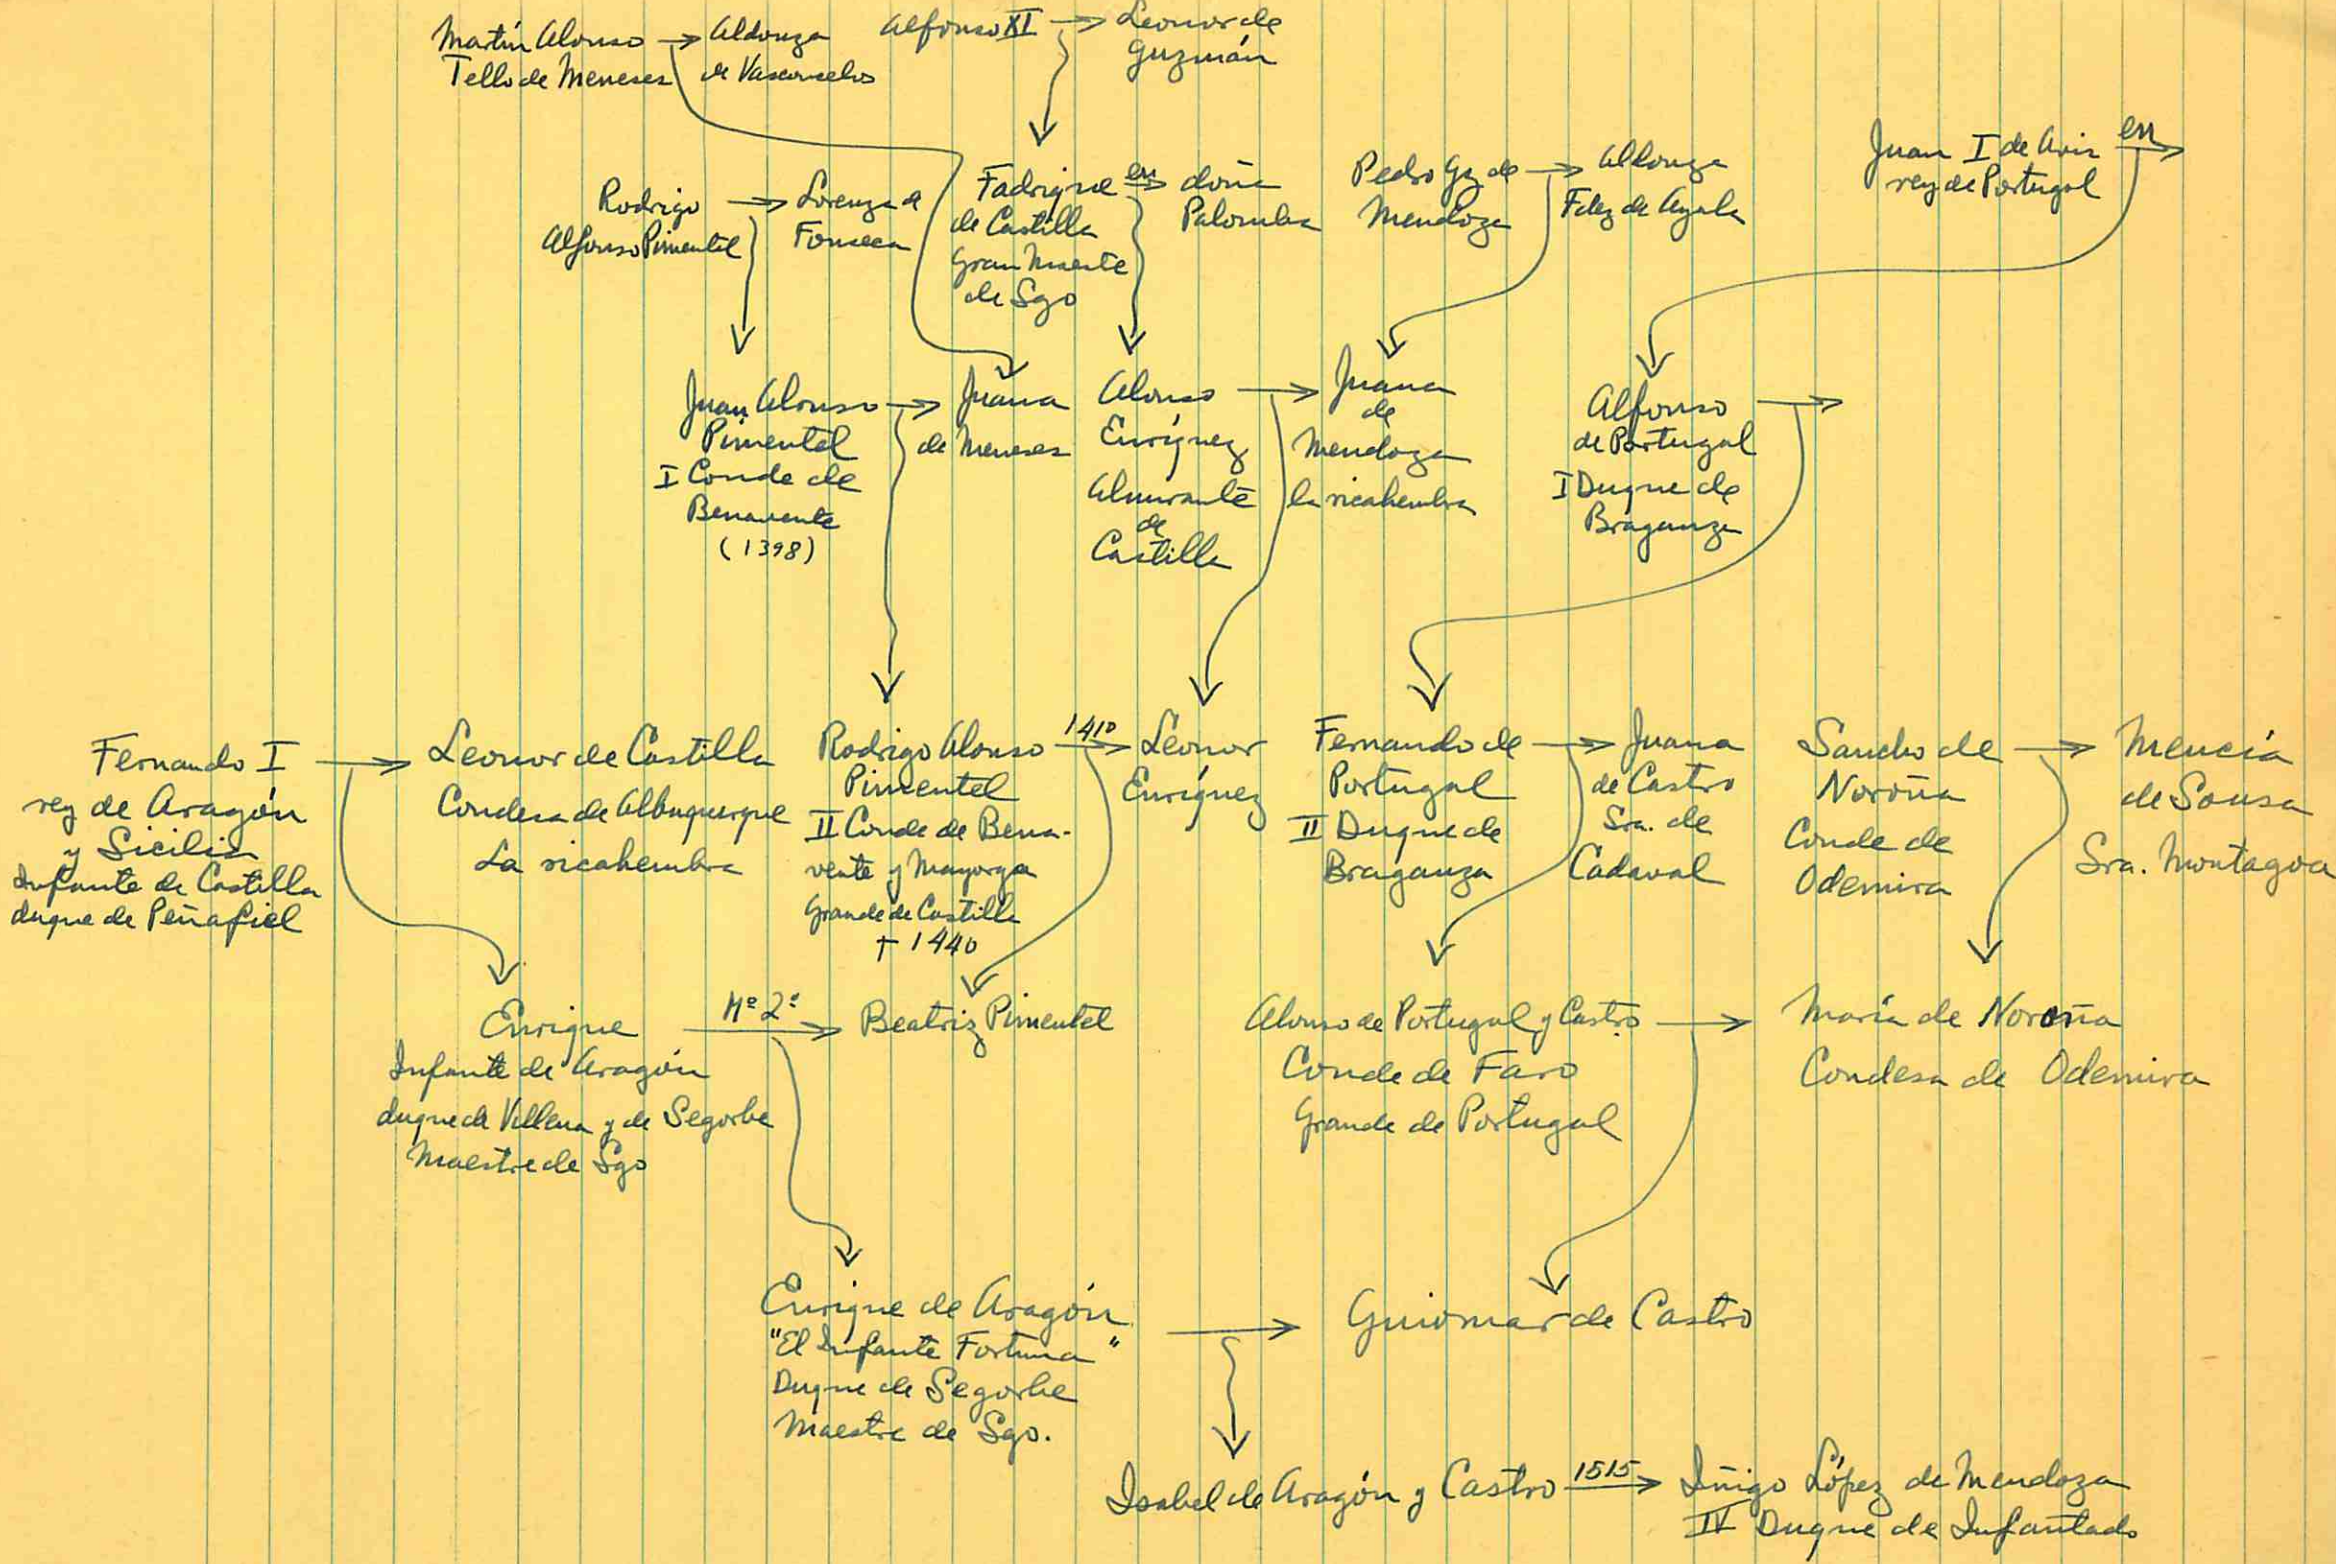 Martín Alonso
Tello de Meneses
Aldonza
de Vasconcelos
Alfonso XI
Leonor de
Guzmán
Rodrigo
Alfonso Pimentel
Lorenza d
Fonseca
Fadrique
de Castilla
Gran Maeste
de Sgo
en
doña
Palomba
Pedro Gz de
Mendoza
Aldonza
Fdez de Ayala
Juan I de Avis
rey de Portugal
en
Juan Alonso
Pimentel
I Conde de
Benavente
(1398)
Juana
de Meneses
Alonso
Enríquez
Almirante
de
Castilla
Juana
de
Mendoza
la ricahembra
Alfonso
de Portugal
I Duque de
Braganza
Fernando I
rey de Aragón
y Sicilia
Infante de Castilla
duque de Peñafiel
Leonor de Castilla
Condesa de Alburquerque
La ricahembra
Rodrigo Alonso
Pimentel
II Conde de Bena-
vente y Mayorga
Grande de Castilla
† 1440
1410
Leonor
Enríquez
Fernando de
Portugal
II Duque de
Braganza
Juana
de Castro
Sra. de
Cadaval
Sancho de
Noroña
Conde de
Odemira
Mencía
de Sousa
Sra. Montagoa
Enrique
Infante de Aragón
duque de Villena y de Segorbe
Maestre de Sgo
Mº 2º
Beatriz Pimentel
Alonso de Portugal y Castro
Conde de Faro
Grande de Portugal
María de Noroña
Condesa de Odemira
Enrique de Aragón
"El Infante Fortuna"
Duque de Segorbe
Maestre de Sgo.
Guiomar de Castro
Isabel de Aragón y Castro
1515
Iñigo López de Mendoza
IV Duque de Infantado